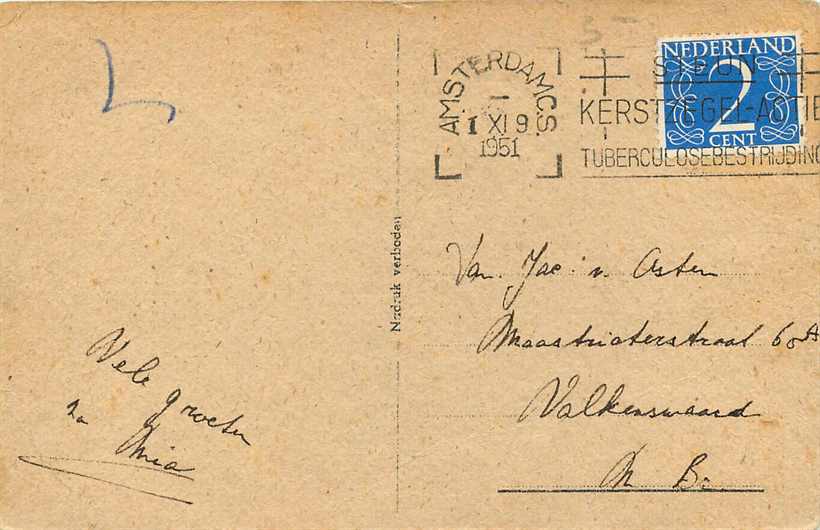 AMSTERDAM C.S.
1 XI 9
1951
STEUN
KERSTZEGEL-ACTIE
TUBERCULOSEBESTRIJDING
NEDERLAND
2
CENT
Nadruk verboden
Van Jac. v. Asten
Maastrichterstraat 68A
Valkenswaard
N B.
Vele groeten
Mia